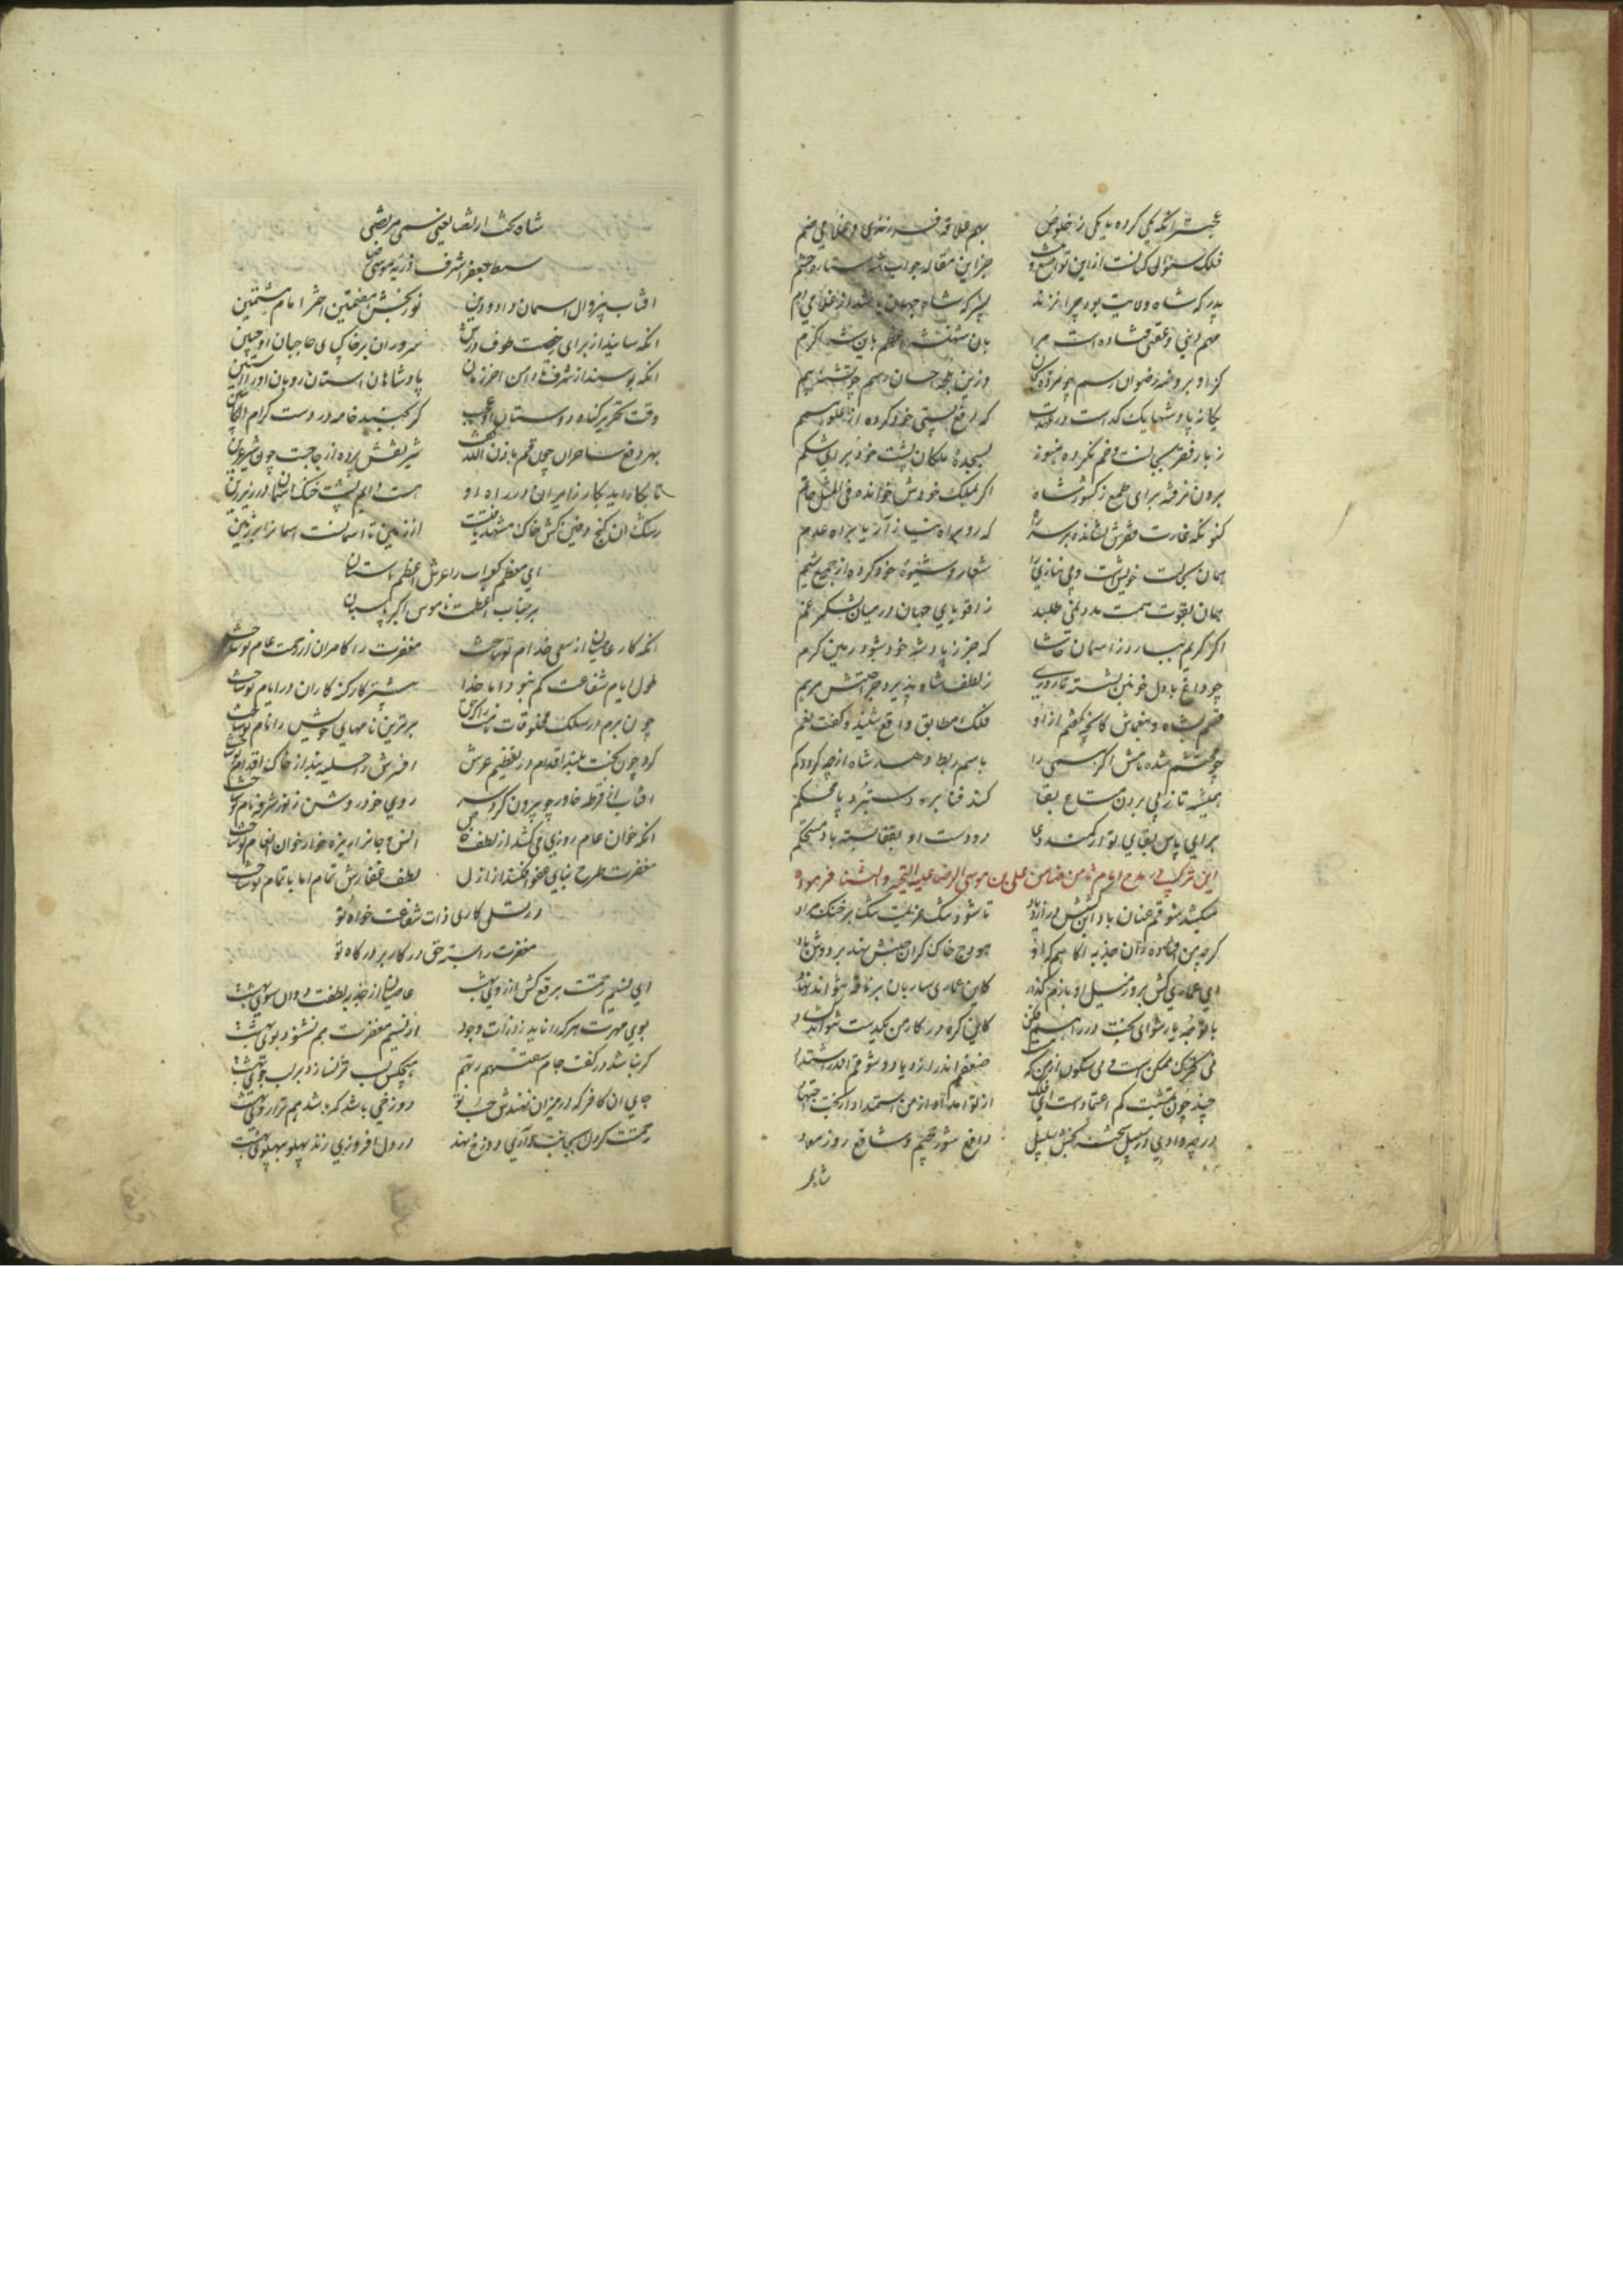 عجبتر آنکه یکی کرده با یکی ز خلوص بهم علاقه فرزندی و غلامی ضم
فلک سؤال کنان از این تواضع و جز این مقاله جواب شه ستاره حشم
پدر که شاه ولایت بود چرا نزند پسر که شاه جهان باشد از غلامی دم
مهم دینی و عقبی فتاده است مرا بان شهنشه اعظم باین شه اکرم
کز او بروضه رضوان رسم چو مرده بجان وزین بلجه احسان رسم چو تشنه بیم
یکانه پادشها یک کداست در که رفع پستی خود کرده از علو همم
ز بار فقر سبی لت و خم نکرده هنوز بسجده ملکان پشت خود برای شکم
برون نرفته برای طمع ز کشور شاه اکر بملک خودش خوانده فی المثل حاتم
کنونکه غارت فقرش نشانده بر سر راه که رو براه نیاز آرد یا براه عدم
همان سخای خویش است و بی نیازی شعار و شیوه خود کرده از جمیع شیم
همان بقوت همت مدد نمی طلبد ز اقویای جهان در میان لشکر غم
اکر کریم ببارد ز آسمان حاشا که جز ز پادشه خود شود رهین کرم
چو داغ با دل خونین نشسته تا روزی ز لطف شاه پذیرد جراحتش مرهم
قسم بشاه و بنعماش کانچه گفتم از او فلک مطابق واقع شنید و گفت نعم
چو محتشم شده نامش اکر مسمی را باسم ربط دهد شاه از چه کردد کم
همیشه تا ز پی بردن متاع بقا کند فنا بره دستبرد پا محکم
برای پاس بقای تو از کمند دعا دو دست او بقفا بسته باد مستحکم
این ترکیب در مدح امام ثامن ضامن علی بن موسی الرضا علیه التحیه والثنا فرموده
میکشد شوقم عنان باد این کشش در ازدیاد تا شود تنک عزیمت تنک بر خنک مراد
کرچه من افتاده ام آن جذبه اما هم کز او هودج خاک کران جنبش نهد بر دوش باد
ای عماری کش بروز سیل او بازم گذار کاین عماری ساربان بر ناقه نتواند نهاد
با توجه یار شو ای بخت در راهم فکن کاین کره در کار من یکدست نتواند کشاد
نی تحرک ممکن است و نی سکون از من که هست ضعفم اندر ازدیاد و شوقم اندر اشتداد
چند چون همت کم اعتماد است ای فلک از تو امداد از من استمداد از بخت اجتهاد
در ره وادی در سبیل دافع شور جحیم و شافع روز معاد
شاه
شاه تخت ارتضا یعنی سمی مرتضی
سبط جعفر اشرف ذریه موسی رضا
آفتاب بی زوال آسمان داد و دین نوربخش هفتمین اختر امام هشتمین
آنکه سایند از برای رخصت طوف درش سروران بر خاک پای حاجبان او جبین
آنکه بوسند از شرف تا دامن آخر زمان پادشاهان آستان روبان او را آستین
وقت تحریر کناه دوستان او عجب کر بجنبد خامه در دست کرام الکاتبین
بهر دفع ساحران چون قم باذن الله گفت شیر نقش پرده از جا جست چون شیر عرین
تا بکار آید بکار زایران در راه او هست دایم پشت خنک آسمان در زیر زین
رشک آن کنج دفین کش خاک مشهد یافتست از زمین تا آسمانست آسمانرا بر زمین
ای معظم کعبه ات را عرش اعظم آستان
بر جناب اعظمت ناموس اکبر پاسبان
آنکه کار عاصیان از سعی خدام تو ساخت مغفرت را کامران از رحمت عام تو ساخت
طول ایام شفاعت کم نبود اما خدا بیشتر کار گنه کاران در ایام تو ساخت
چون برم در سلک مخلوقات نامت را که حق برترین نامهای خویش را نام تو ساخت
کرد چون بخت بلند اقدام در تعظیم عرش آفرینش را حلیه بند از خاک اقدام تو ساخت
آفتاب از قرطه خاور چو بیرون کرد سر روی خود روشن ز نور شرفه نام تو ساخت
آنکه خوان عام روزی می کشد از لطف خاص انس و جانرا ریزه خوار خوان انعام تو ساخت
مغفرت طرح بنای عفو افکند از ازل لطف غفاریش تمام اما باتمام تو ساخت
در تسلی کاری ذات شفاعت خواه تو
مغفرت را بسته حق در کار بر درگاه تو
ای نسیم رحمتت برقع کش از روی بهشت عاصیان از جذبه لطفت دوان سوی بهشت
بوی مهرت هر که را ناید ز ذرات وجود از نسیم مغفرت هم نشنود بوی بهشت
کر نباشد در کفت جام سقیهم ربهم هیچکس لب تر نسازد بر لب جوی بهشت
جای آن کافر که در میزان نهندش حب تو دوزخی باشد که باشد هم ترازوی بهشت
رحمتت کر دل بجانب داری دوزخ نهد در دل افروزی زند پهلو بپهلوی بهشت